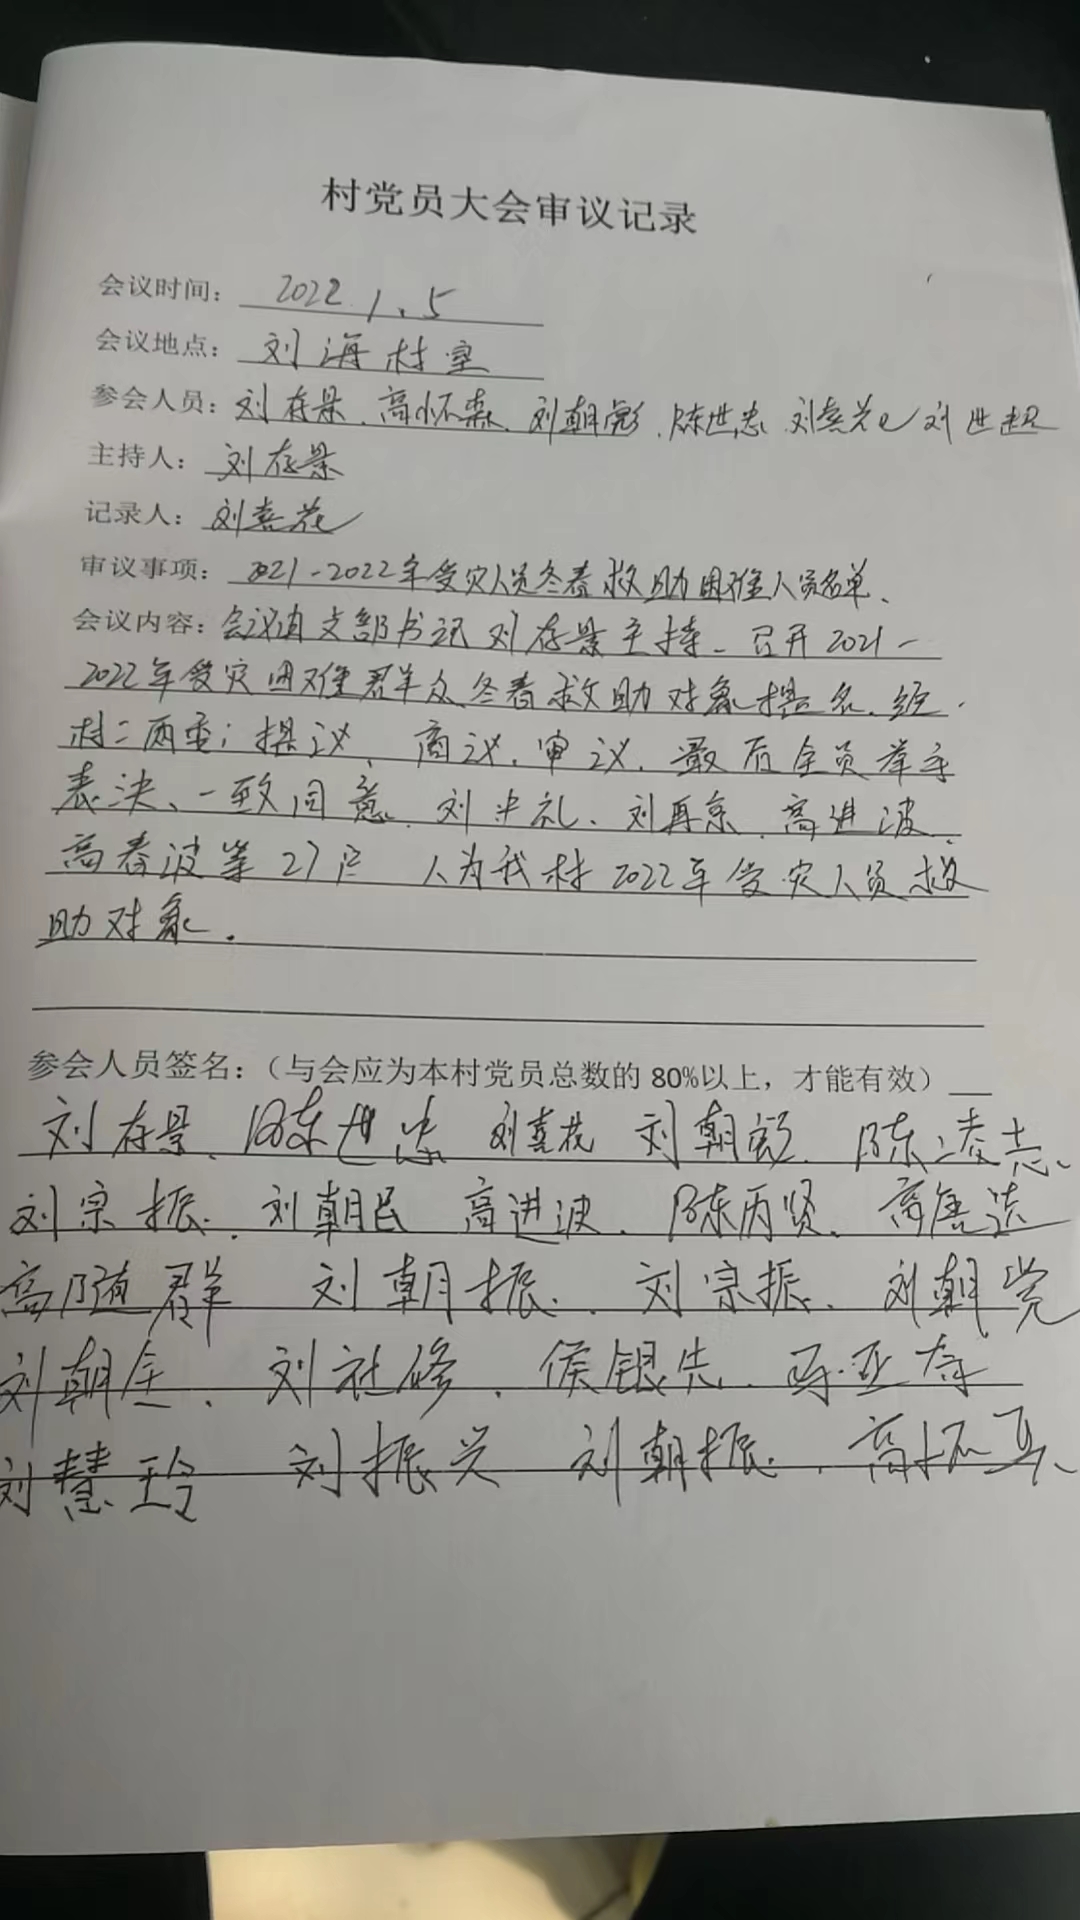 村党员大会审议记录
会议时间: 2022.1.5
会议地点: 刘海村室
参会人员: 刘存景、高怀森、刘朝彪、陈世忠 刘喜花 刘世超
主持人: 刘存景
记录人: 刘喜花
审议事项: 2021-2022年受灾人员冬春救助困难人员名单、
会议内容: 会议由支部书记刘存景主持、召开2021-
2022年受灾困难群众冬春救助对象提名、经
村二两委; 提议、商议、审议、最后全员举手
表决、一致同意、刘半礼、刘再京、高进波、
高春波等27户 人为我村2022年受灾人员救
助对象.
参会人员签名:(与会应为本村党员总数的80%以上，才能有效)
刘存景、陈世忠 刘喜花 刘朝彪、陈凌志、
刘宗振、刘朝民 高进波、陈丙贤、
高随群 刘朝振、刘宗振、刘朝党
刘朝全、刘社修、侯银先、
刘慧玲 刘振兴 刘朝振、